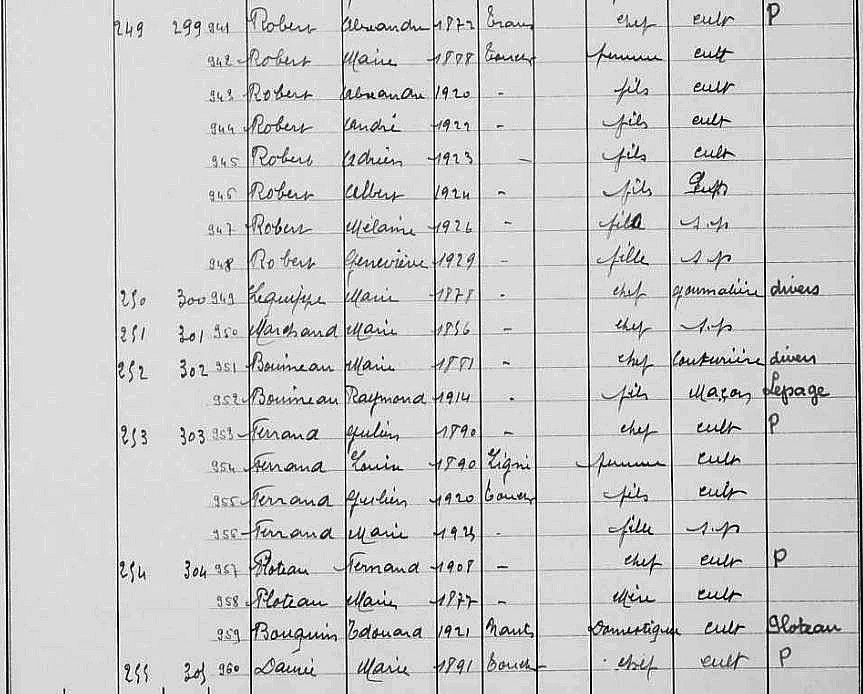 249 299 941 Robert Alexandre 1872 chef cult P
942 Robert Marie 1888 Touch femme cult
943 Robert Alexandre 1920 - fils cult
944 Robert André 1922 - fils cult
945 Robert Adrien 1923 - fils cult
946 Robert Albert 1924 - fils
947 Robert Mélanie 1926 - fille s.p
948 Robert Geneviève 1929 - fille s.p
250 300 949 Lequippe Marie 1878 - chef journalière divers
251 301 950 Marchand Marie 1856 - chef s.p
252 302 951 Marie 1881 - chef Couturière divers
952 Raymond 1914 - fils Maçon Lepage
253 303 953 Ferrand Julien 1890 - chef cult P
954 Ferrand Louise 1890 Ligné femme cult
955 Ferrand Julien 1920 Touch fils cult
956 Ferrand Marie - fille s.p
254 304 957 Ploteau Fernand 1908 - chef cult P
958 Ploteau Marie 1877 - Mère cult
959 Bouquin Edouard 1921 Nants Domestique cult Ploteau
255 305 960 Marie 1891 Touch chef cult P